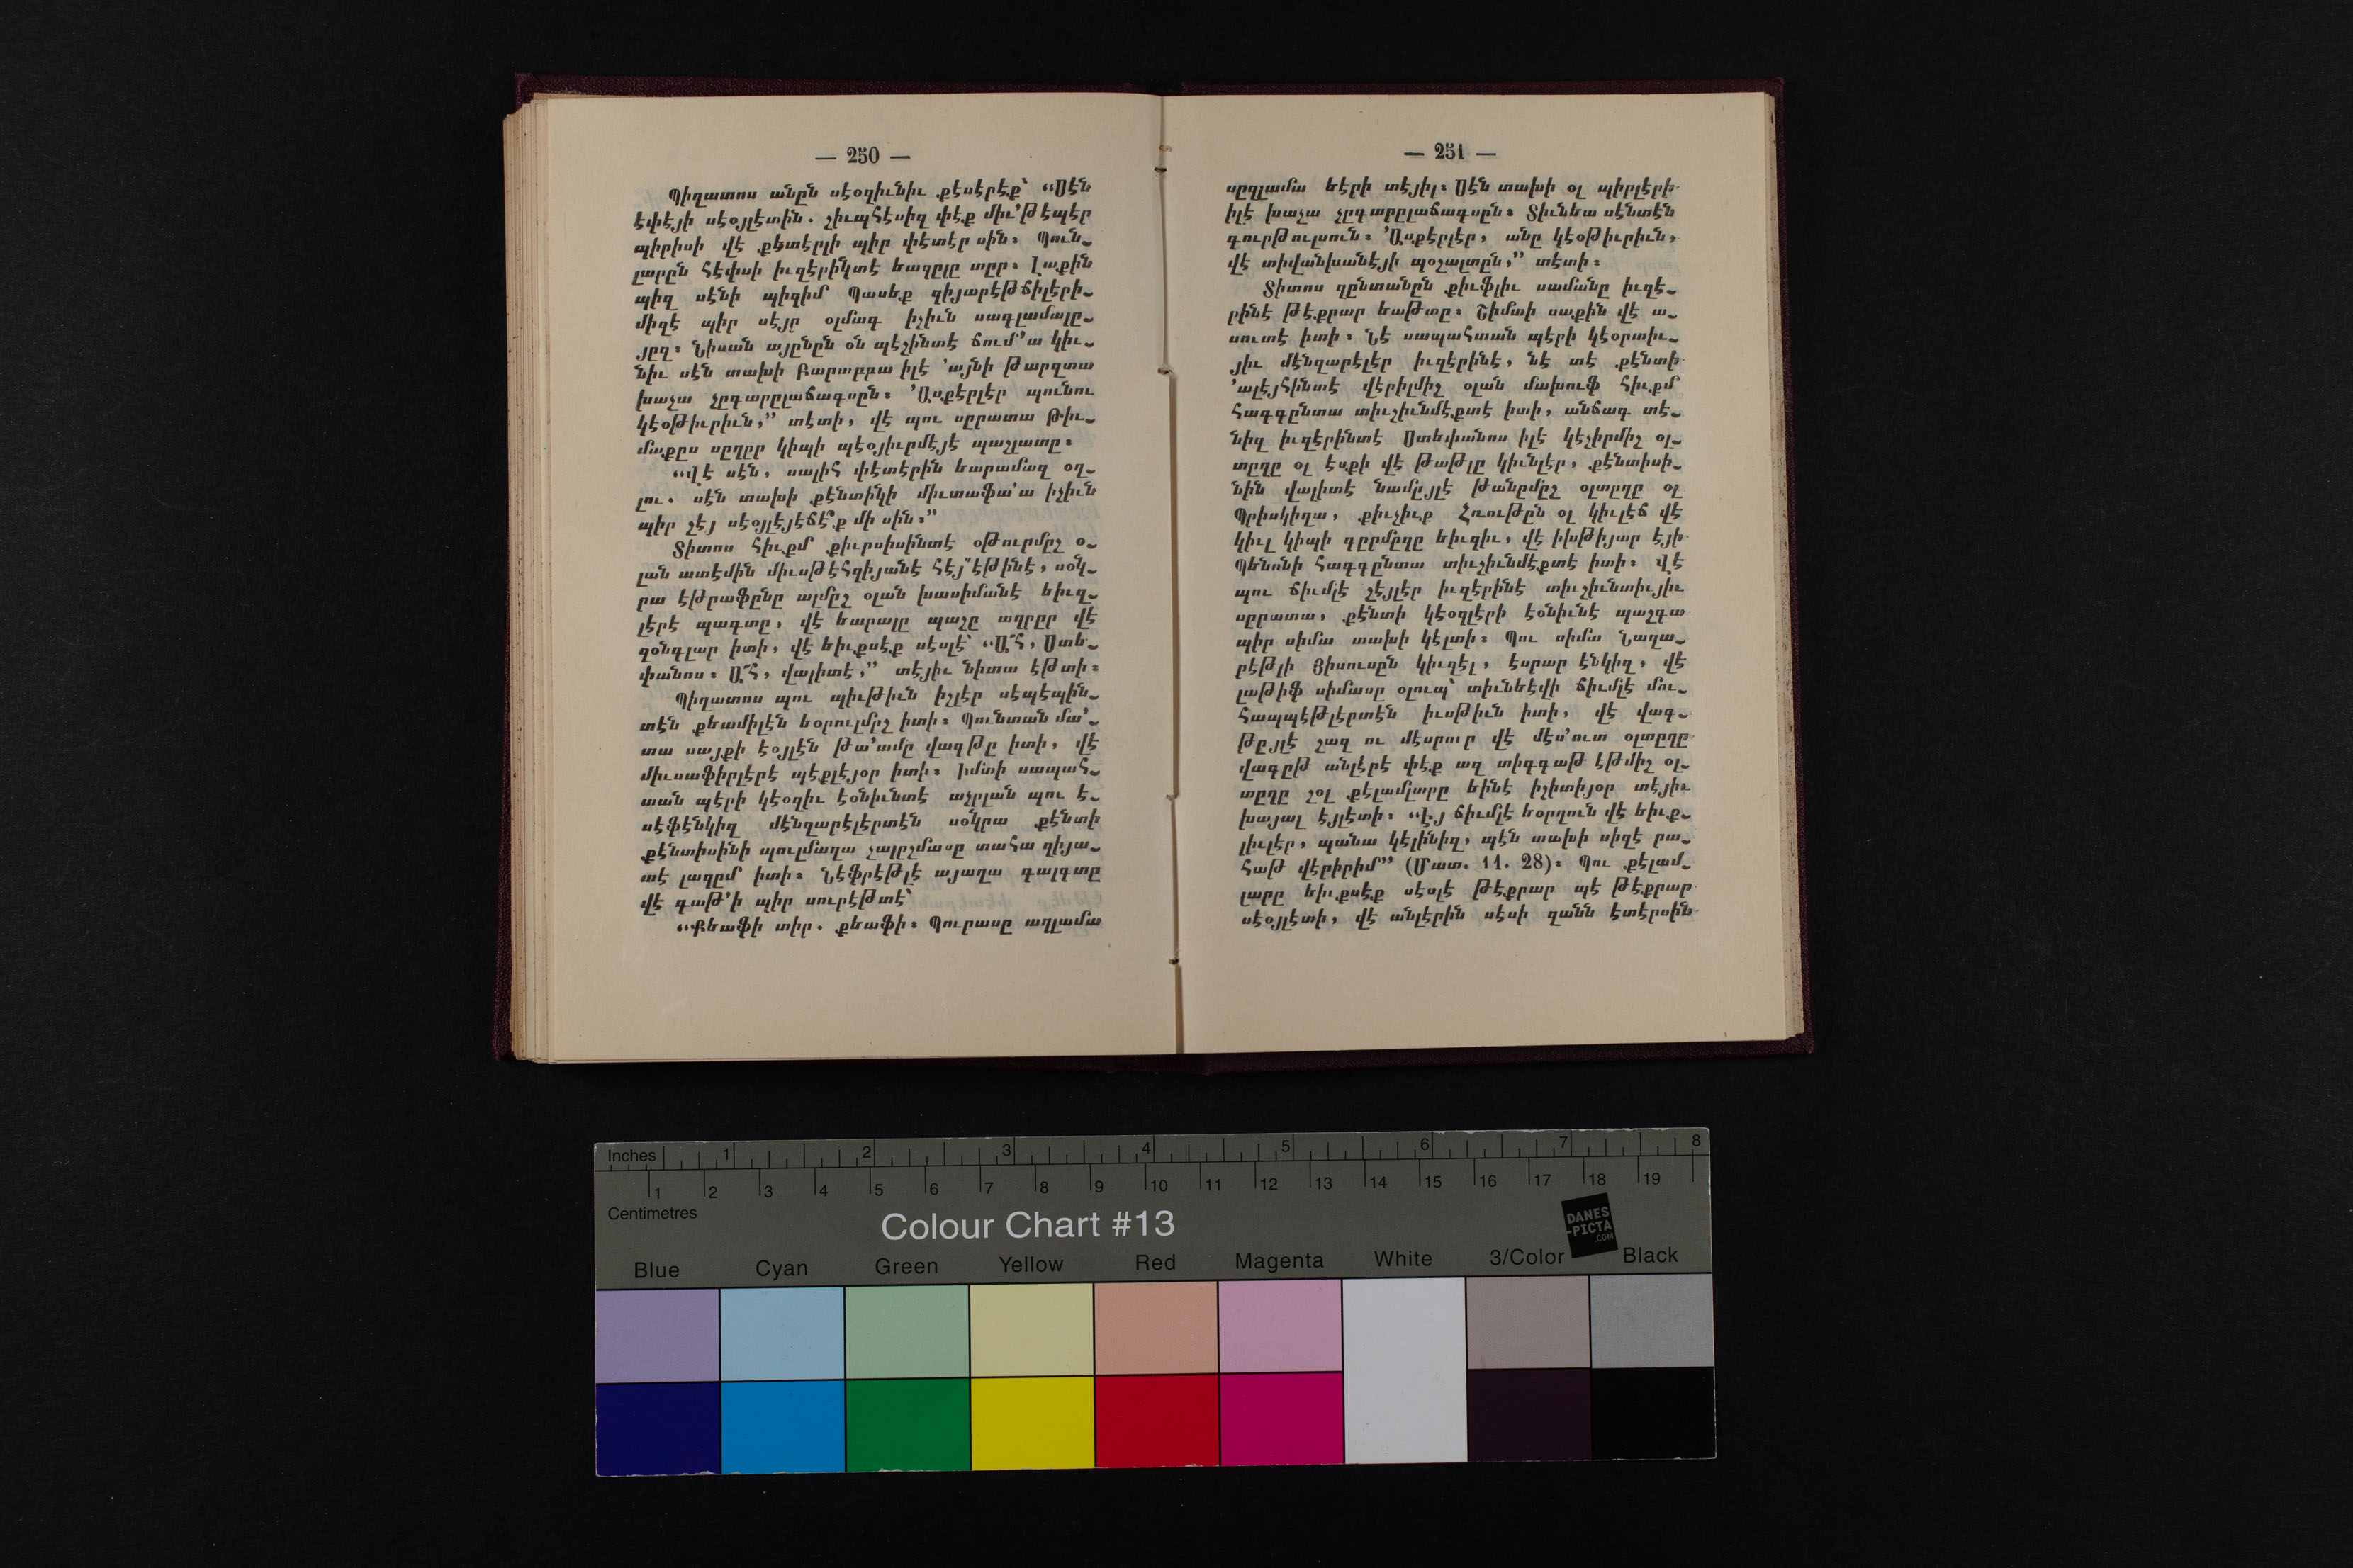 — 250 —
Պիղատոս անըն սէօզիւնիւ քէսէրէք՝ “Սէն
էփէյի սէօյլէտին. չիւպհէսիզ փէք միւ՚թէպէր
պիրիսի վէ քետէրլի պիր փետէր սին։ Պուն-
լարըն հէփսի իւզէրինտէ եազըլը տըր։ Լաքին
պիզ սէնի պիզիմ Պասեք զիյարէթճիլէրի-
միզէ պիր սէյր օլմագ իչիւն սագլամալը-
յըզ։ Նիսան այընըն օն պէշինտէ ճում՚ա կիւ-
նիւ սէն տախի Բարաբբա իլէ ՚այնի թարզտա
խաչա չըգարըլաճագսըն։ ՚Ասքէրլէր պունու
կէօթիւրիւն,” տէտի, վէ պու սըրատա թիւ-
մաքըս սըղըր կիպի պէօյիւրմէյէ պաշլատը։
“Վէ սէն, սալիհ փետէրին եարամազ օղ-
լու. սէն տախի քէնտինի միւտաֆա՚ա իչիւն
պիր շէյ սէօյլէյէճէ՞ք մի սին։”
Տիտոս հիւքմ քիւրսիսինտէ օթուրմըշ օ-
լան ատէմին միւսթէհզիյանէ հէյ՚էթինէ, սօն-
րա էթրաֆընը ալմըշ օլան խասիմանէ եիւզ-
լէրէ պագտը, վէ եարալը պաշը աղրըր վէ
զօնգլար իտի, վէ եիւքսէք սէսլէ՝ “Ա՜հ, Ստե-
փանոս։ Ա՜հ, վալիտէ,” տէյիւ նիտա էթտի։
Պիղատոս պու պիւթիւն իշլէր սէպէպին-
տէն քեամիլէն եօրուլմըշ իտի։ Պունտան մա՚-
տա սայքի էօյլէն թա՚ամը վագթը իտի, վէ
միւսաֆիրլէրէ պէքլէյօր իտի։ Իմտի սապահ-
տան պէրի կէօզիւ էօնիւնտէ աչըլան պու է-
սէֆէնկիզ մէնզարէլէրտէն սօնրա քէնտի
քէնտիսինի պուլմաղա չալըշմասը տահա զիյա-
տէ լազըմ իտի։ Նէֆրէթլէ այաղա գալգտը
վէ գաթ՚ի պիր սուրէթտէ՝
“Քեաֆի տիր. քեաֆի։ Պուրասը աղլամա
— 251 —
սըզլամա եէրի տէյիլ։ Սէն տախի օլ պիրլէրի
իլէ խաչա չըգարըլաճագսըն։ Տիւնեա սէնտէն
գուրթուլսուն։ ՚Ասքէրլէր, անը կէօթիւրիւն,
վէ տիվանխանէյի պօշալտըն,” տէտի։
Տիտոս զընտանըն քիւֆլիւ սամանը իւզէ-
րինէ թէքրար եաթտը։ Շիմտի սաքին վէ ա-
սուտէ իտի։ Նէ սապահտան պէրի կէօրտիւ-
յիւ մէնզարէլէր իւզէրինէ, նէ տէ քէնտի
՚ալէյհինտէ վէրիլմիշ օլան մախուֆ հիւքմ
հագգընտա տիւշիւնմէքտէ իտի, անճագ տէ-
նիզ իւզէրինտէ Ստեփանոս իլէ կէչիրմիշ օլ-
տըղը օլ էսքի վէ թաթլը կիւնլէր, քէնտիսի-
նին վալիտէ նամըյլէ թանըմըշ օլտըղը օլ
Պրիսկիղա, քիւչիւք Հռութըն օլ կիւլէճ վէ
կիւլ կիպի գըրմըզը եիւզիւ, վէ իխթիյար էյի
Պենոնի հագգընտա տիւշիւնմէքտէ իտի։ Վէ
պու ճիւմլէ շէյլէր իւզէրինէ տիւշիւնտիւյիւ
սըրատա, քէնտի կէօզլէրի էօնիւնէ պաշգա
պիր սիմա տախի կէլտի։ Պու սիմա Նաղա-
րէթլի Յիսուսըն կիւզէլ, էսրար էնկիզ, վէ
լաթիֆ սիմասը օլուպ՝ տիւնեէվի ճիւմլէ մու-
հապպէթլէրտէն իւսթիւն իտի, վէ վագ-
թըյլէ շազ ու մէսրուր վէ մէս՚ուտ օլտըղը
վագըթ անլէրէ փէք ազ տիգգաթ էթմիշ օլ-
տըղը շօլ քէլամլարը եինէ իշիտիյօր տէյիւ
խայալ էյլէտի։ “Էյ ճիւմլէ եօրղուն վէ եիւք-
լիւլէր, պանա կէլինիզ, պէն տախի սիզէ րա-
հաթ վէրիրիմ” (Մատ. 11. 28)։ Պու քէլամ-
լարը եիւքսէք սէսլէ թէքրար պէ թէքրար
սէօյլէտի, վէ անլէրին սէսի զանն էտէրսին
Inches 1 2 3 4 5 6 7 8
1 2 3 4 5 6 7 8 9 10 11 12 13 14 15 16 17 18 19
Centimetres
Colour Chart #13
DANES
-PICTA
.COM
Blue Cyan Green Yellow Red Magenta White 3/Color Black